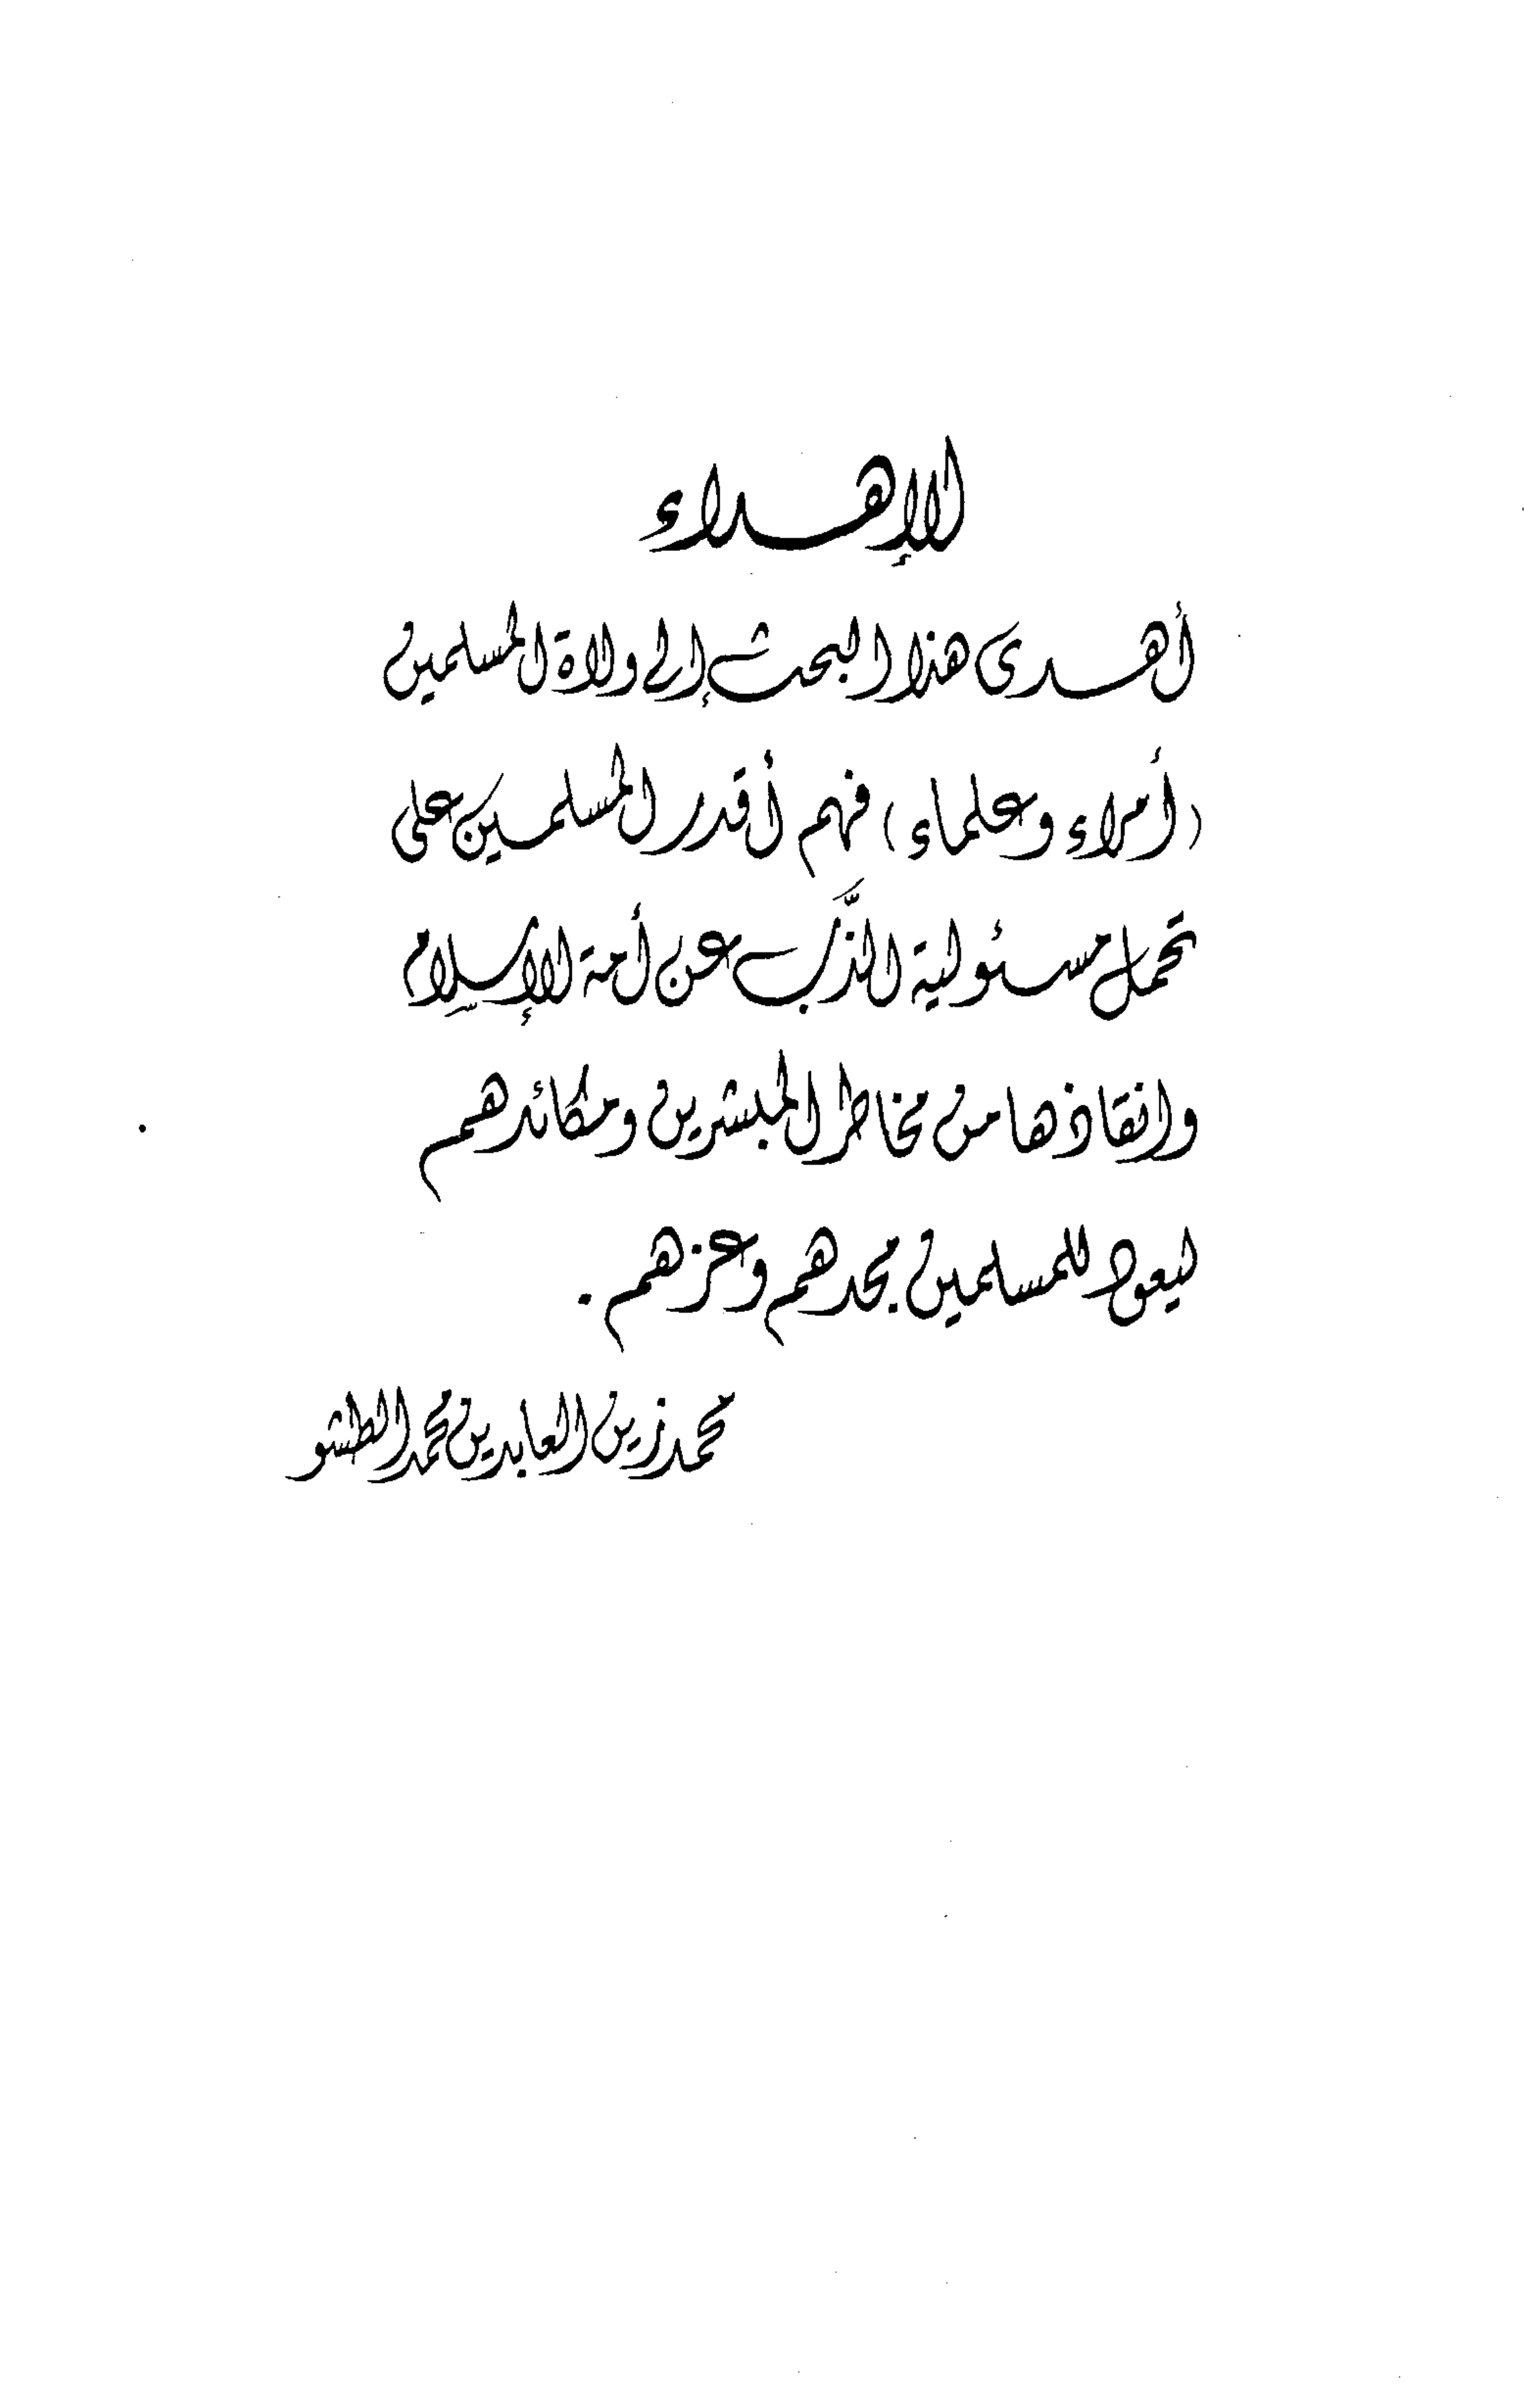 الإهداء
أهدى هذا البحث إلى ولاة المسلمين
(أمراء وعلماء) فهم أقدر المسلمين على
تحمل مسئولية الذَّب عن أمة الإسلام
وانقاذها من مخاطر المبشرين ومكائدهم
ليعود للمسلمين مجدهم وعزهم.
محمد زين العابدين محمد الطشو